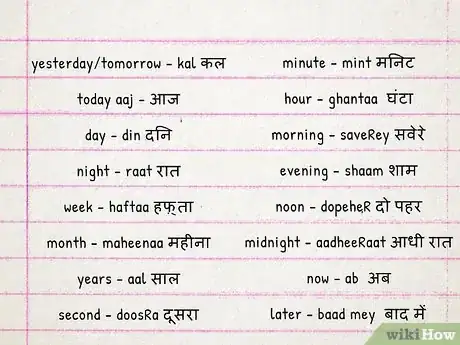 yesterday/tomorrow – kal कल
today aaj – आज
day – din दनि
night – raat रात
week – haftaa हफ्‌ता
month – maheenaa महीना
years – aal साल
second – doosRa दूसरा
minute – mint मनिट
hour – ghantaa घंटा
morning – saveRey सवेरे
evening – shaam शाम
noon – dopeheR दो पहर
midnight – aadheeRaat आधी रात
now – ab अब
later – baad mey बाद में
wikiHow